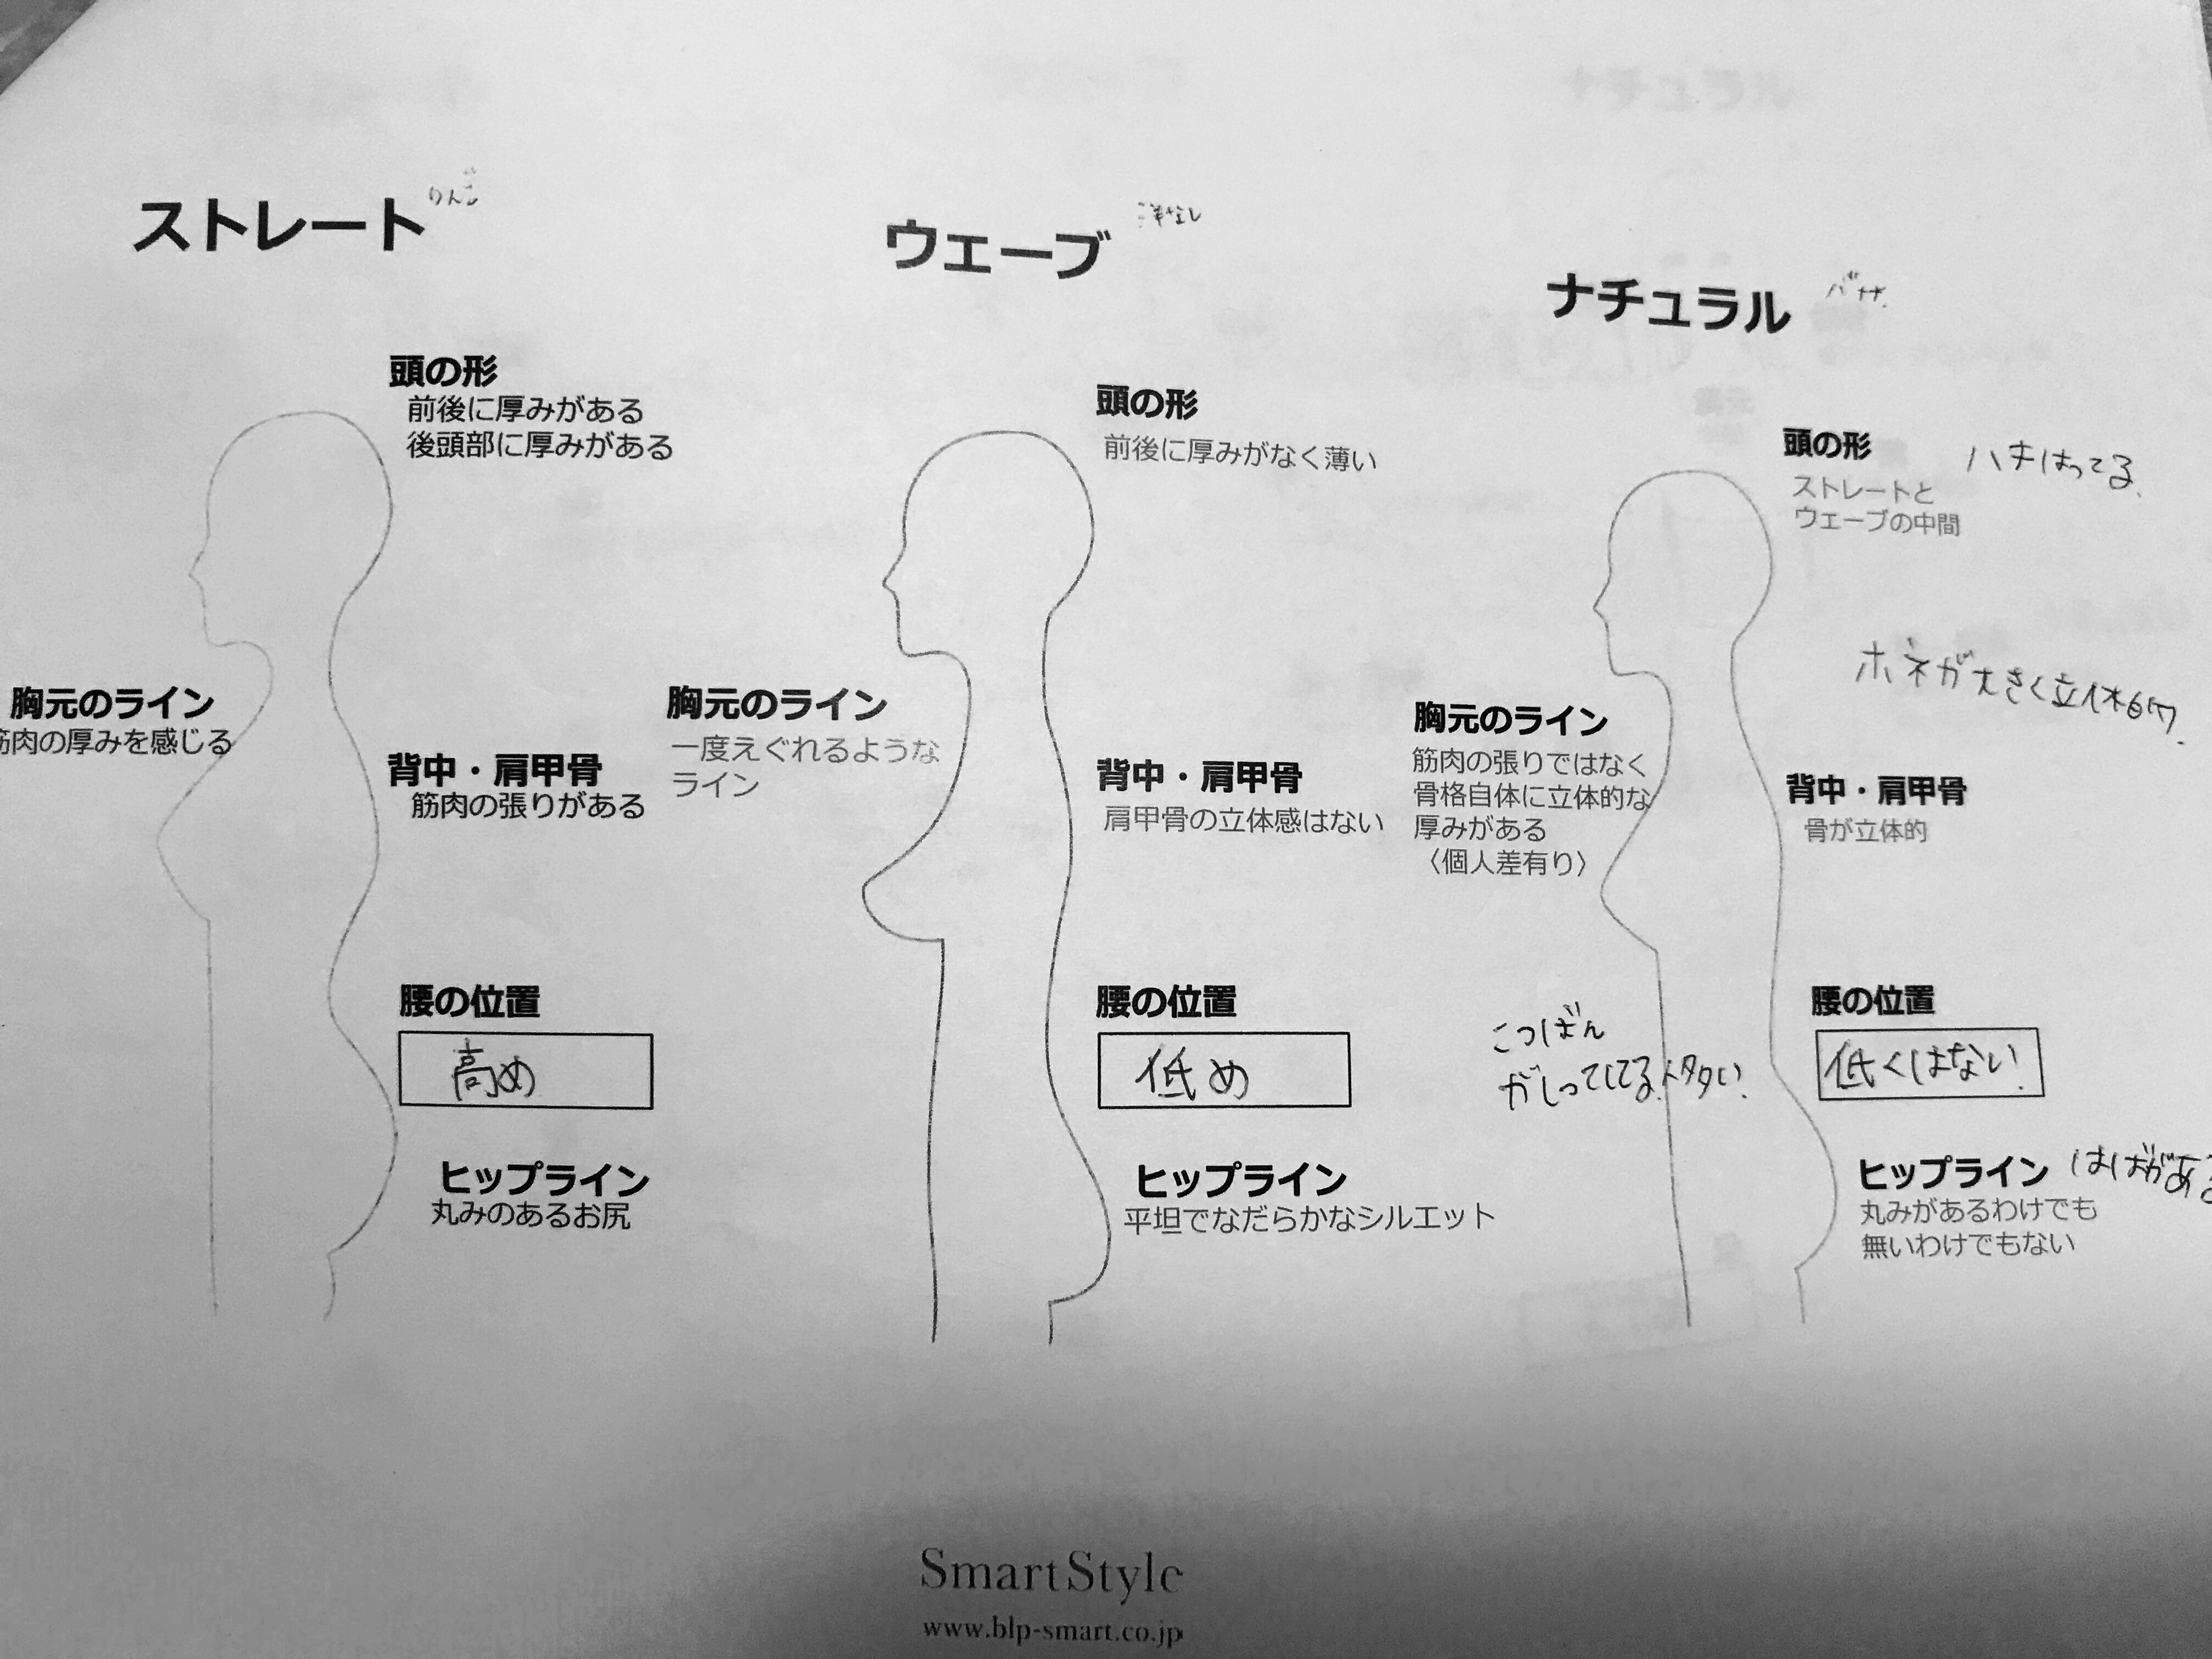 ストレート りんご
頭の形
前後に厚みがある
後頭部に厚みがある
胸元のライン
筋肉の厚みを感じる
背中・肩甲骨
筋肉の張りがある
腰の位置
高め
ヒップライン
丸みのあるお尻
ウェーブ 洋なし
頭の形
前後に厚みがなく薄い
胸元のライン
一度えぐれるような
ライン
背中・肩甲骨
肩甲骨の立体感はない
腰の位置
低め
ヒップライン
平坦でなだらかなシルエット
ナチュラル バナナ
頭の形 ハチはってる
ストレートと
ウェーブの中間
ホネが大きく立体的
胸元のライン
筋肉の張りではなく
骨格自体に立体的な
厚みがある
〈個人差有り〉
背中・肩甲骨
骨が立体的
こつばん
腰の位置
低くはない
ヒップライン はばがある
丸みがあるわけでも
無いわけでもない
SmartStyle
www.blp-smart.co.jp